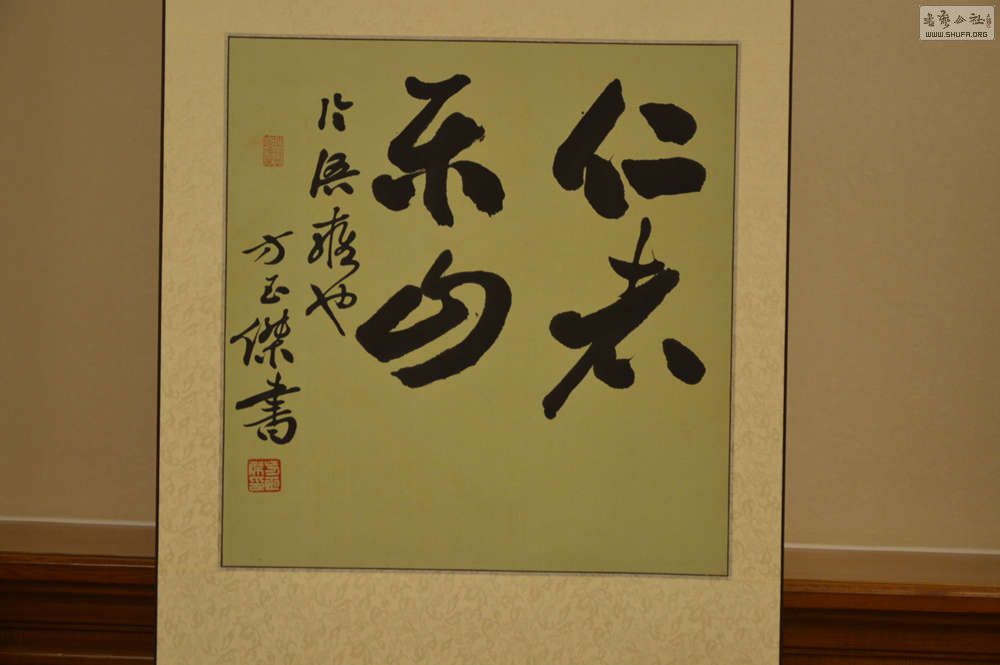 仁者
乐山
论语雍也
方玉傑書
书艺公社
WWW.SHUFA.ORG